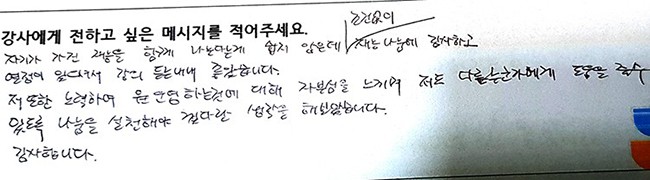 강사에게 전하고 싶은 메시지를 적어주세요.
조건없이
자기가 가진 재능을 함께 나눈다는게 쉽지 않은데 재능나눔에 감사하고
열정이 있으셔서 강의 듣는내내 좋았습니다.
저 또한 노력하여 대해 자부심을 느끼며 저도 다른누군가에게 도움을 줄수
있도록 나눔을 실천해야 겠다란 생각을 해보았습니다.
감사합니다.